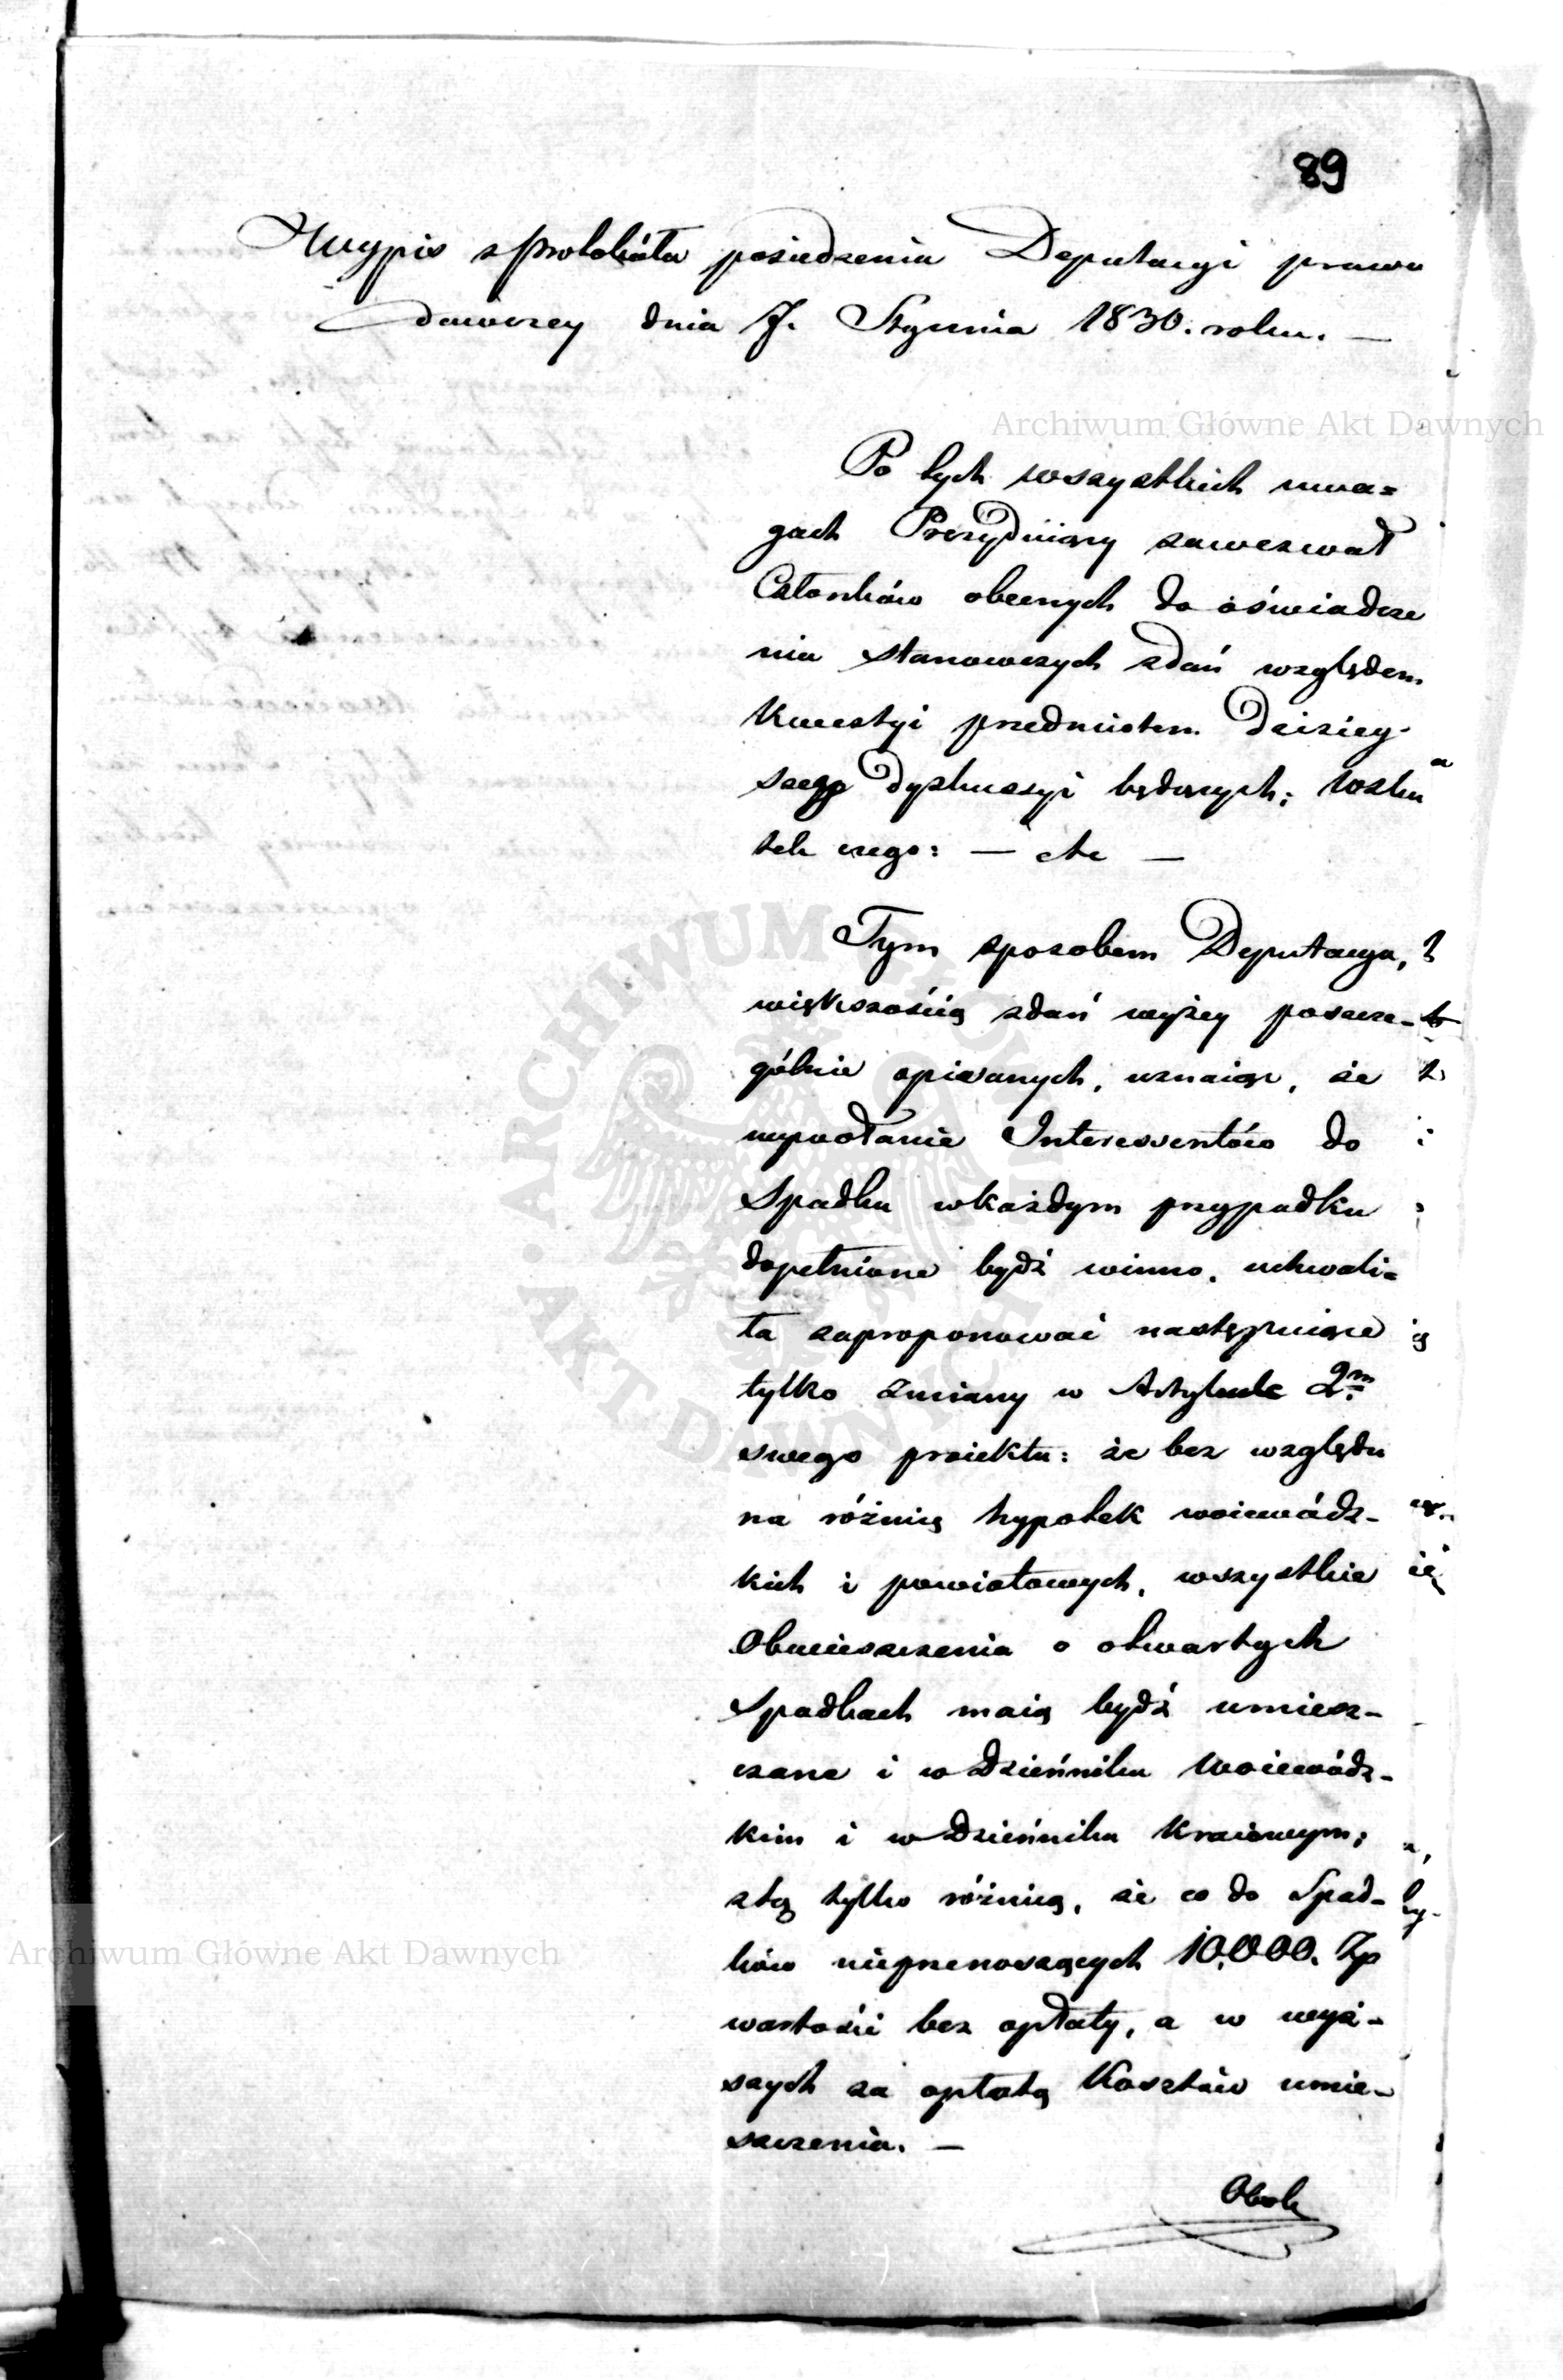 89
Wypis z Protokółu posiedzenia Deputacyi prawo
dawczey dnia 7. Stycznia 1830. roku. —
Archiwum Główne Akt Dawnych
Po tych wszystkich uwa=
gach Prezyduiący zawezwał
Członków obecnych do oświadcze
nia stanowczych zdań względem
kwestyi przedmiotem dzisiey-
szego dyskussyi będących; wsku
tek czego: — etc —
Tym sposobem Deputacya,
większością zdań wyżey poszcze-
gólnie opisanych, uznaiąc, że
wywołanie Interessentów do
Spadku w każdym przypadku
dopełnione bydź winno, uchwali=
ła zaproponować następuiące
tylko zmiany w Artykule 2m
swego proiektu: że bez względu
na różnicę hypotek woiewódz-
kich i powiatowych, wszystkie
Obwieszczenia o otwartych
Spadkach maią bydź umiesz-
czane i w Dzienniku Woiewódz-
kim i w Dzienniku Kraiowym;
z tą tylko różnicą, że co do Spad-
ków nieprzenoszących 10,000. Zp
wartości bez opłaty, a w wyż-
szych za opłatą Kosztów umie-
szczenia. —
Obok
ARCHIWUM GŁÓWNE AKT DAWNYCH
Archiwum Główne Akt Dawnych